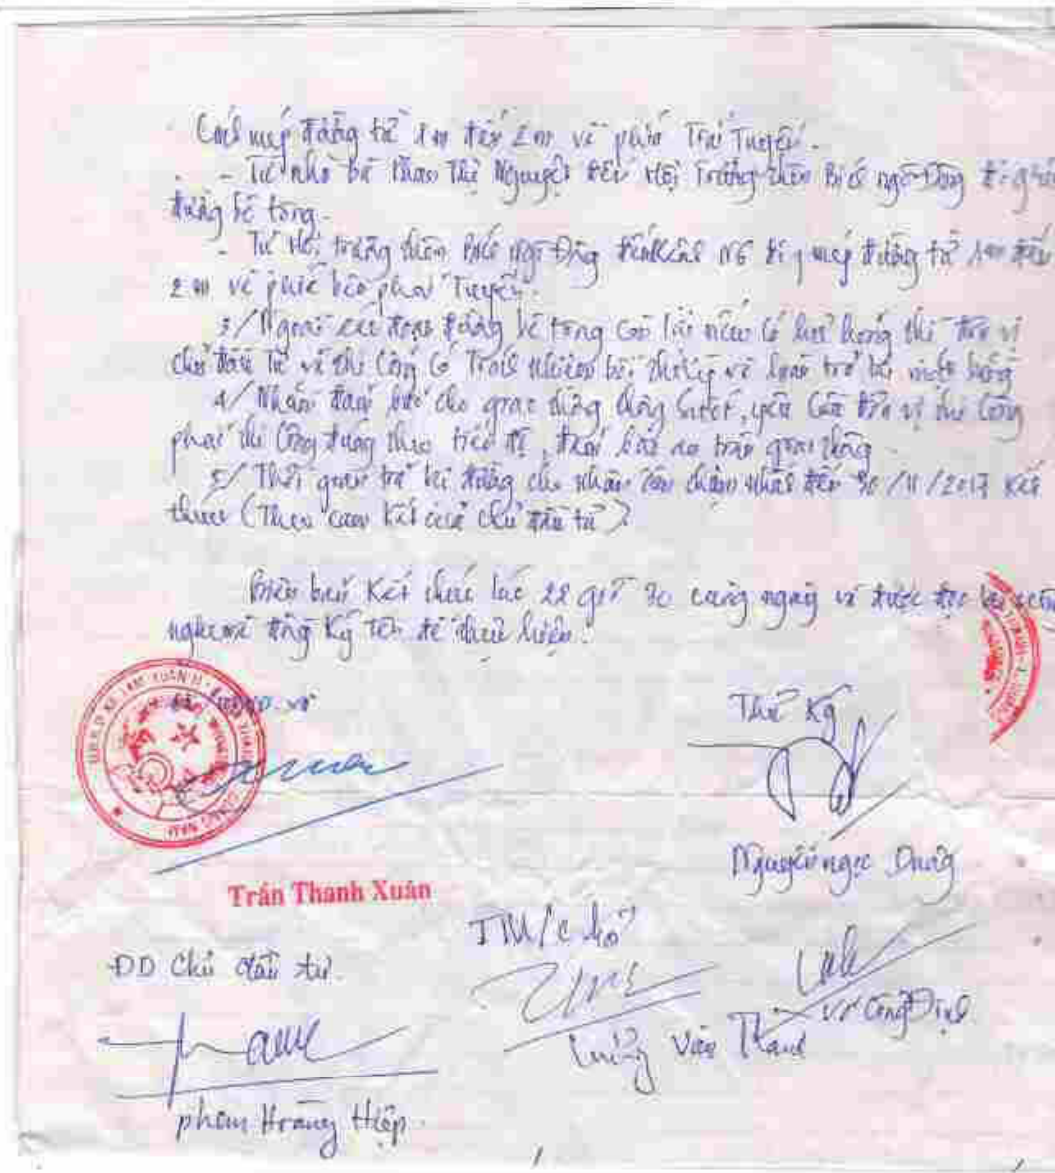 Cách mép đường từ 1m đến 2m về phía Trái Tuyến.
- Từ nhà bà Phan Thị Nguyệt đến Hội Trường thôn Bắc ngõ Đông đi giữa
đường bê tông.
- Từ Hội trường thôn Bắc Ngõ Đông đến N6 đi mép đường từ 1m đến
2m về phía bên phải Tuyến.
3/ Ngoài các đoạn đường bê tông còn lại nếu có hư hỏng thì đơn vị
chủ đầu tư và thi công có Trách nhiệm bồi thường và hoàn trả lại mặt bằng
4/ Nhằm đảm bảo cho giao thông thông suốt, yêu cầu đơn vị thi công
phải thi công đúng theo tiến độ, đảm bảo an toàn giao thông.
5/ Thời gian trả lại đường cho nhân dân chậm nhất đến 30/11/2017 Kết
thúc (Theo cam kết của chủ đầu tư).
Biên bản Kết thúc lúc 22 giờ 30 cùng ngày và được đọc lại
nghe và đồng Ký Tên để thực hiện.
Thư Ký
Nguyễn ngọc Dung
Trần Thanh Xuân
TM/c hộ
ĐD Chủ đầu tư
Lương Văn Thanh
Võ Công Định
phạm Hoàng Hiệp